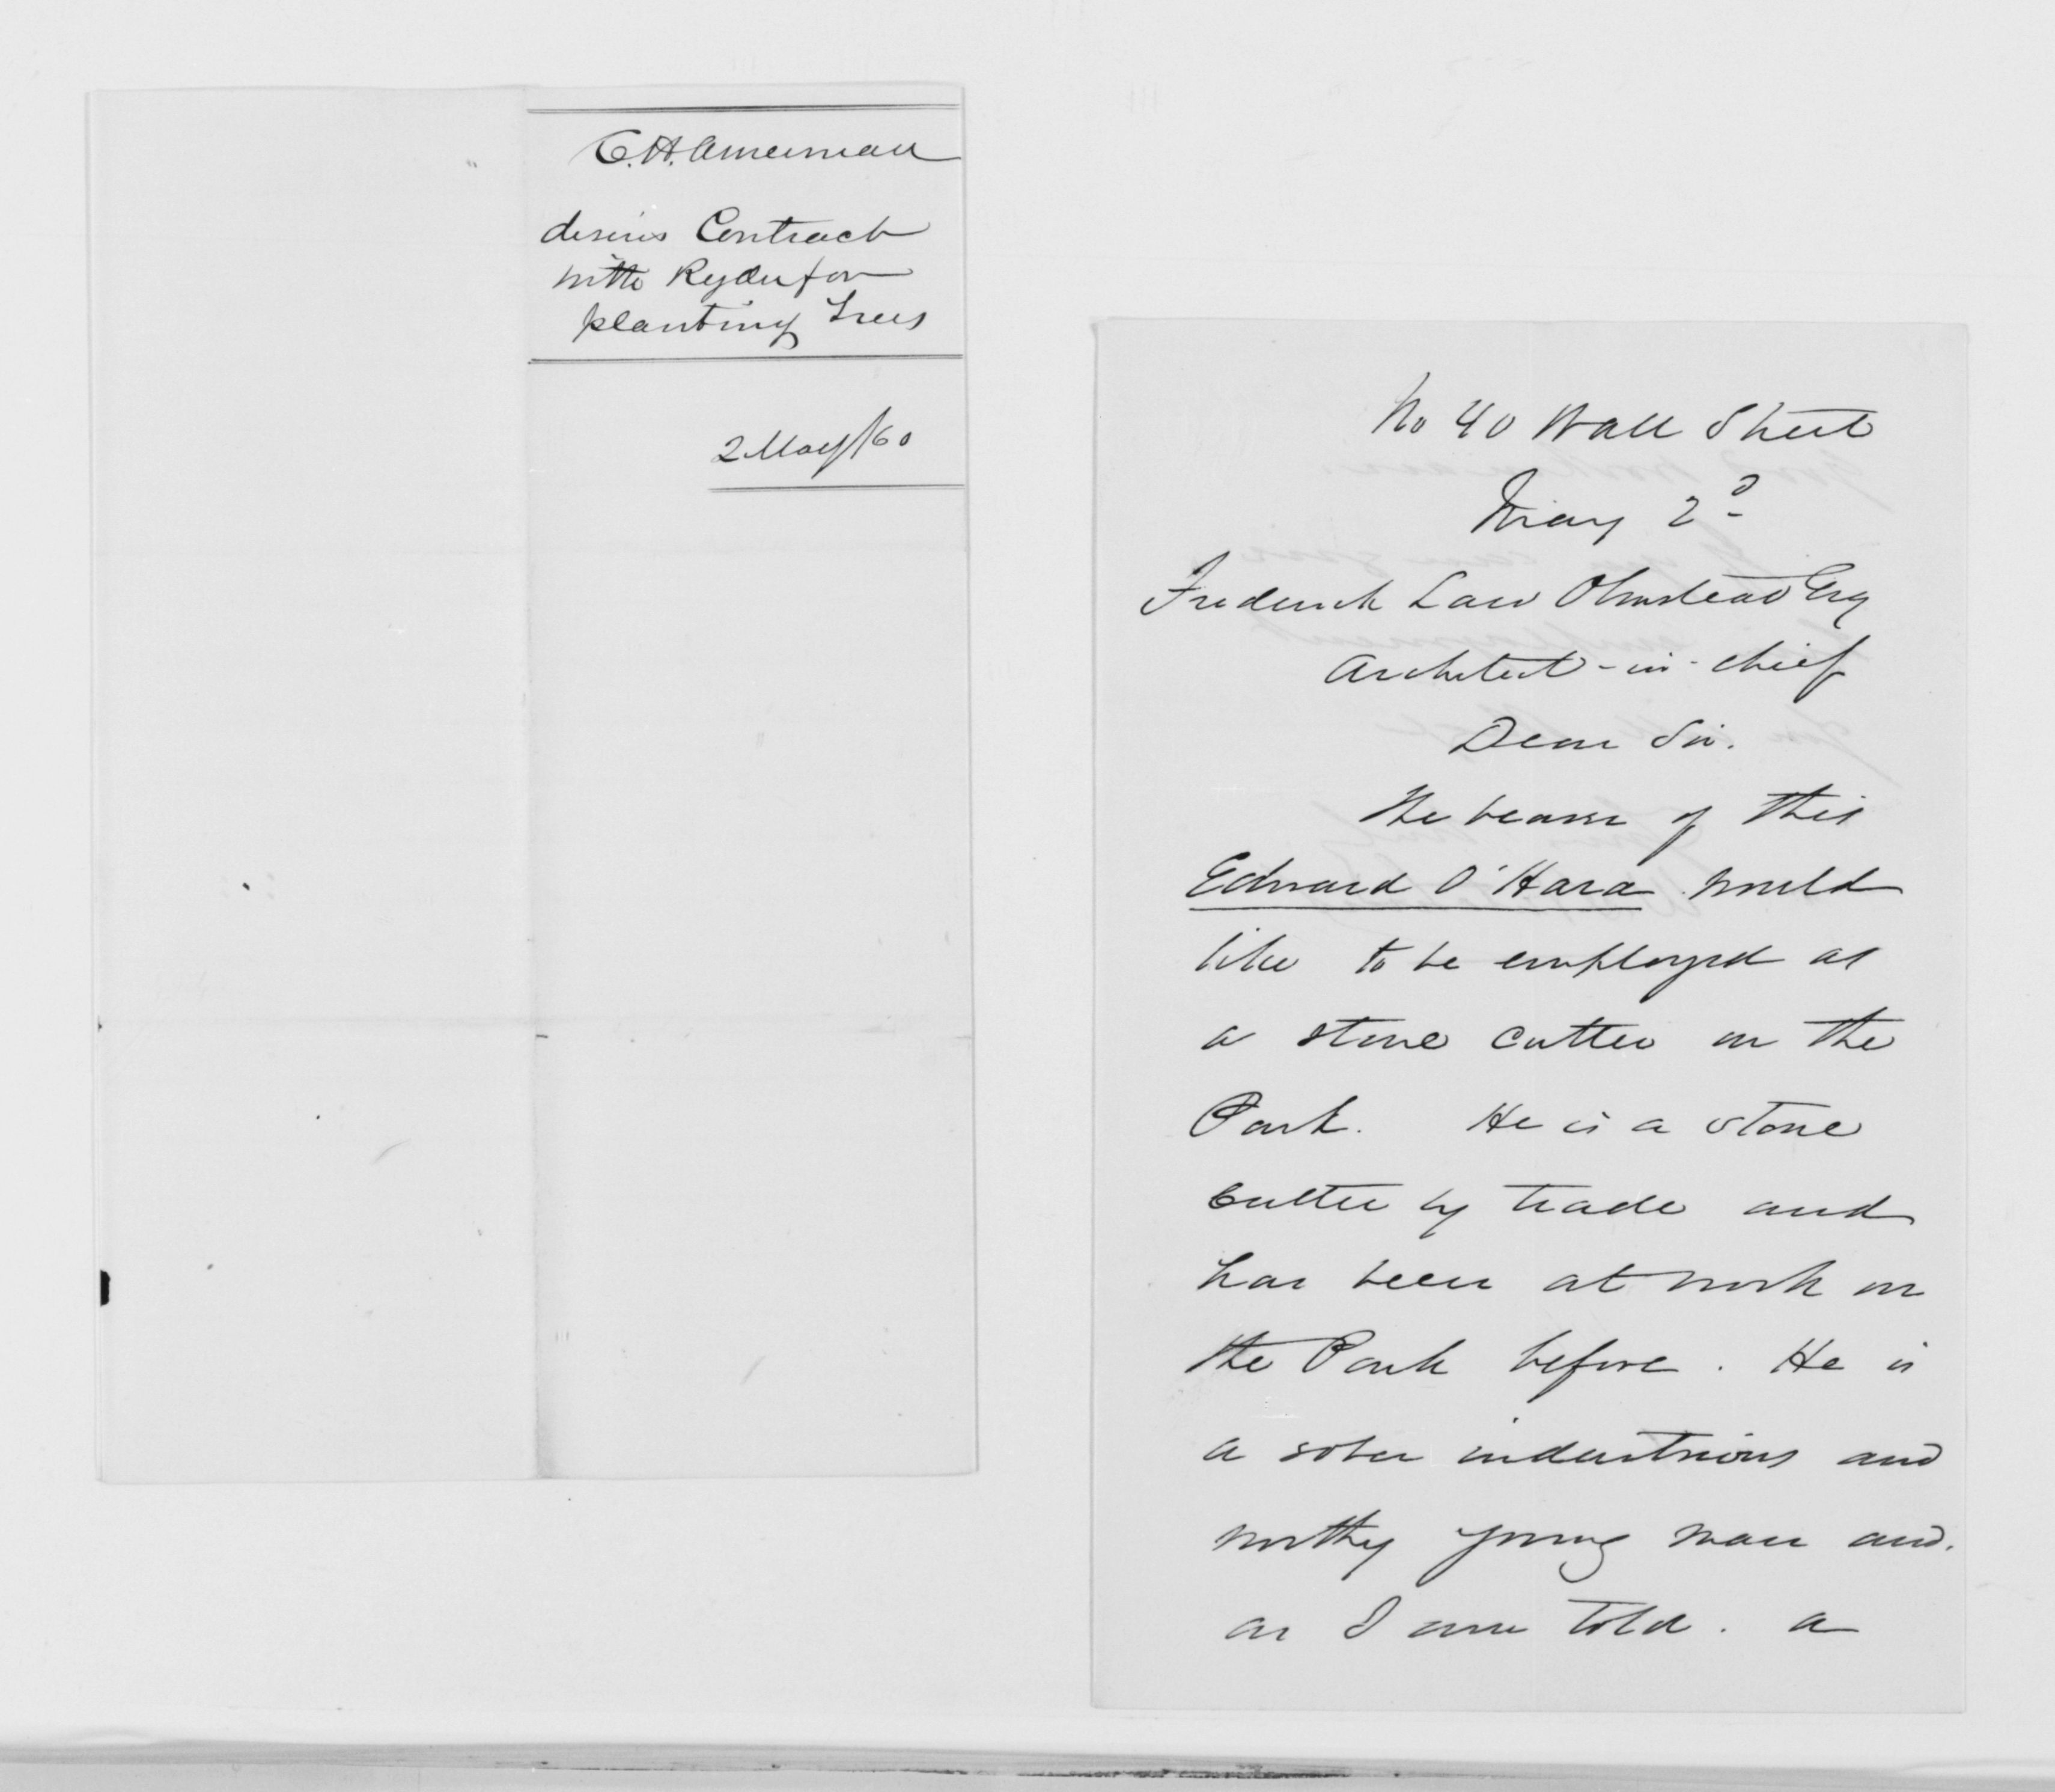 C. H. Amerman
desires Contract
with Ryder for
planting Trees
2 May/60
No 40 Wall Street
May 2d
Frederick Law Olmstead Esq
Architect-in-chief
Dear Sir.
The bearer of this
Edward O'Hara would
like to be employed as
a stone cutter on the
Park. He is a stone
Cutter by trade and
has been at work on
the Park before. He is
a sober industrious and
worthy young man and.
as I am told. a